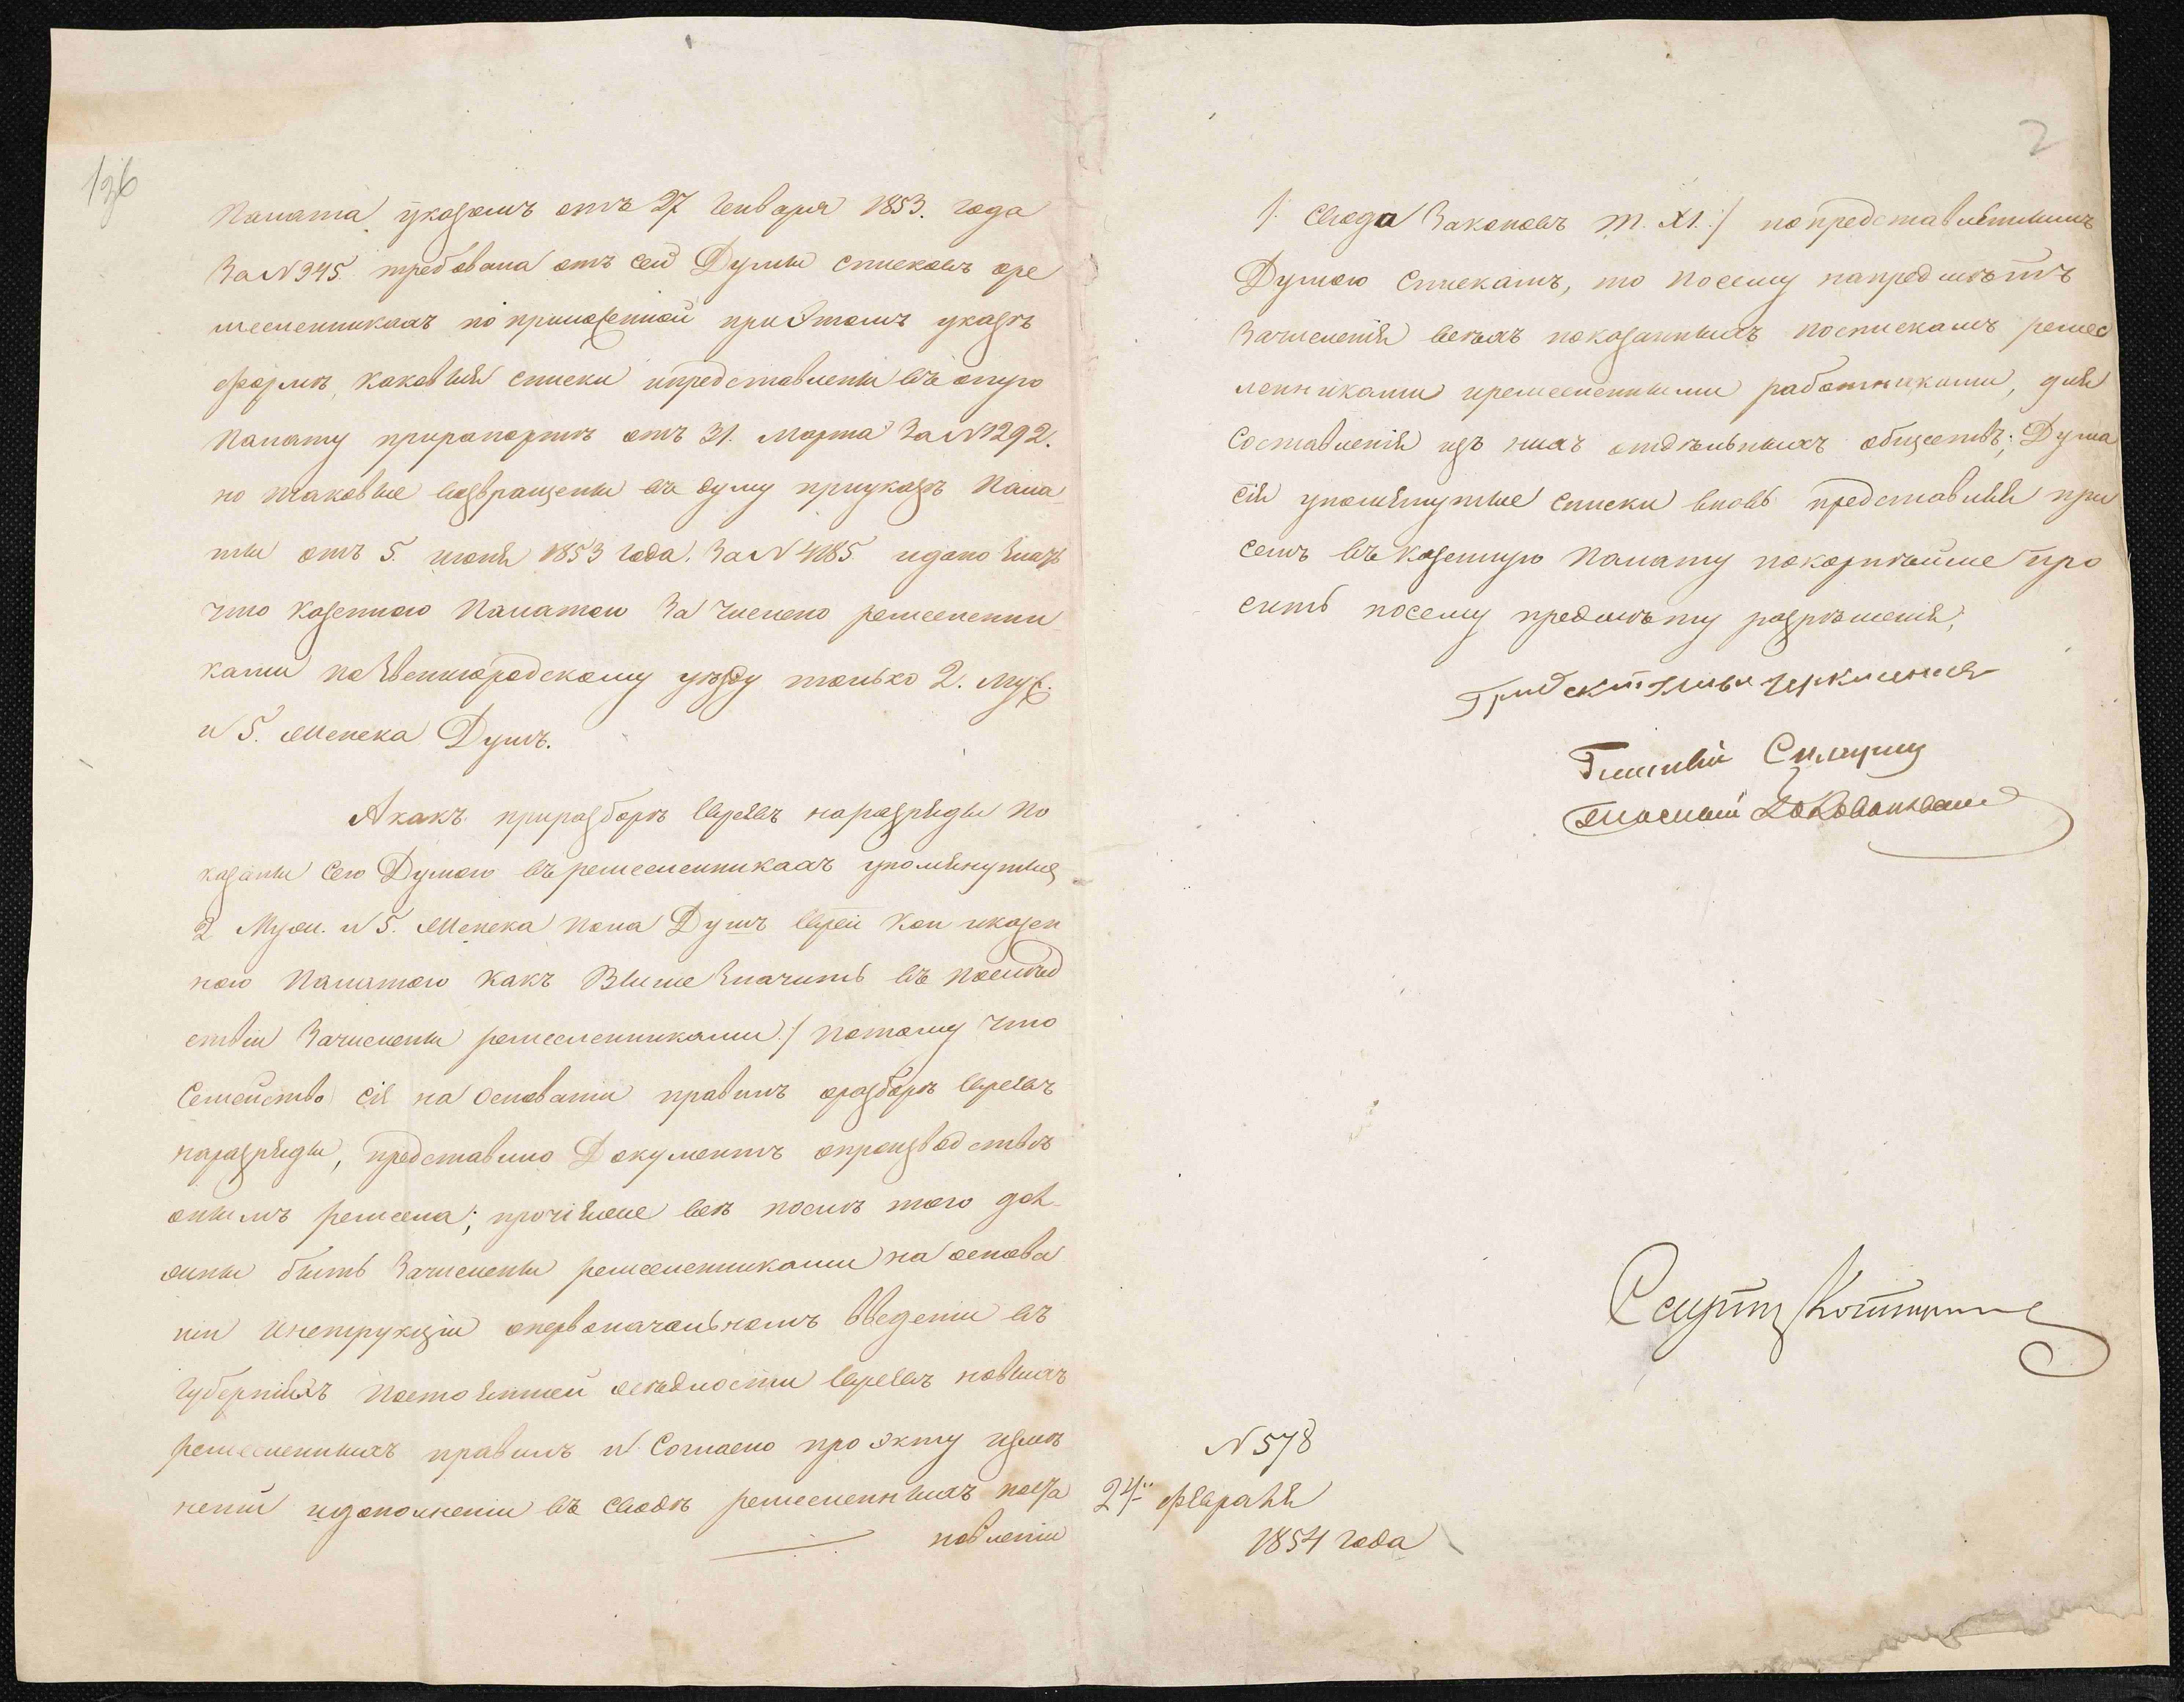 Палата указомъ отъ 27 Генваря 1853. года
За N 945 требовала отъ сей Думы списковъ оре
месленникахъ по приложенной приэтомъ указѣ
формѣ, каковыя списки ипредставлены въ оную
Палату прирапортѣ отъ 31. Марта За N 1292.
но таковые возвращены въ думу приуказѣ Пала
ты отъ 5. июня 1853 года. За N 4185
что Казенною Палатою За числено ремесленни
ками по Звенигородскому уѣзду только 2. муж.
и 5. Женска Душъ.
Акакъ приразборѣ Евреевъ наразряды По
казаны Сею Думою въ ремесленникахъ упомянутыя
2 Муж. и 5. Женска Пола Душъ Еврей кои иказен
ною Палатою какъ Выше Значитъ въ Послѣд
ствіи Зачислены ремесленниками /: Потому что
Семейство сіе на Основаніи правилъ оразборѣ Евреевъ
наразряды, представило Документъ опроизводствѣ
онымъ ремесла; прочіяже всѣ послѣ того дол
жны быть Зачислены ремесленниками на основа
ніи Инструкціи опервоначальномъ Введеніи въ
Губерніяхъ Постоянной осѣдлости Евреевъ новыхъ
ремесленныхъ правилъ и Согласно проэкту измѣ
неній идополненій въ сводѣ ремесленныхъ поста
новленій
2
/: Свода Законовъ Т. XI. :/ попредставленнымъ
Думою Спискамъ, то Посему напредмѣтъ
Зачисленія всѣхъ показанныхъ поспискамъ ремес
ленниками иремесленными работниками, для
Составленія изъ нихъ отдѣльныхъ обществъ; Дума
сія упомянутые Списки вновь представляя при
семъ въ Казенную Палату покорнѣйше про
ситъ посему предмѣту разрѣшенія;
Гласный
Гласный
N 578
24 Февраля
1854 года